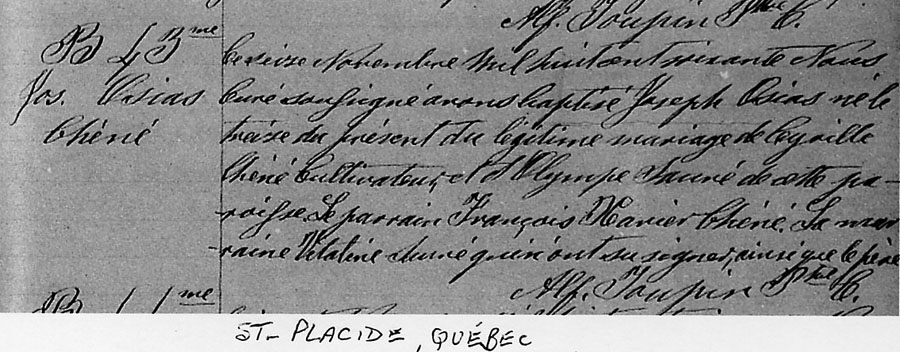 Alf. Toupin Ptre C.
B 43me
Jos. Osias
Chéné
Ce seize Novembre Mil huit cent soixante Nous
Curé soussigné avons baptisé Joseph Osias né le
treize du présent du légitime mariage de Cyrille
Chéné Cultivateur, et d'Olympe Sauvé de cette pa-
-roisse Le parrain François Xavier Chéné. La mar
-raine Vitaline qui n'ont su signer, ainsi que le père
Alf. Toupin Ptre C.
B 44me
ST- PLACIDE, QUÉBEC